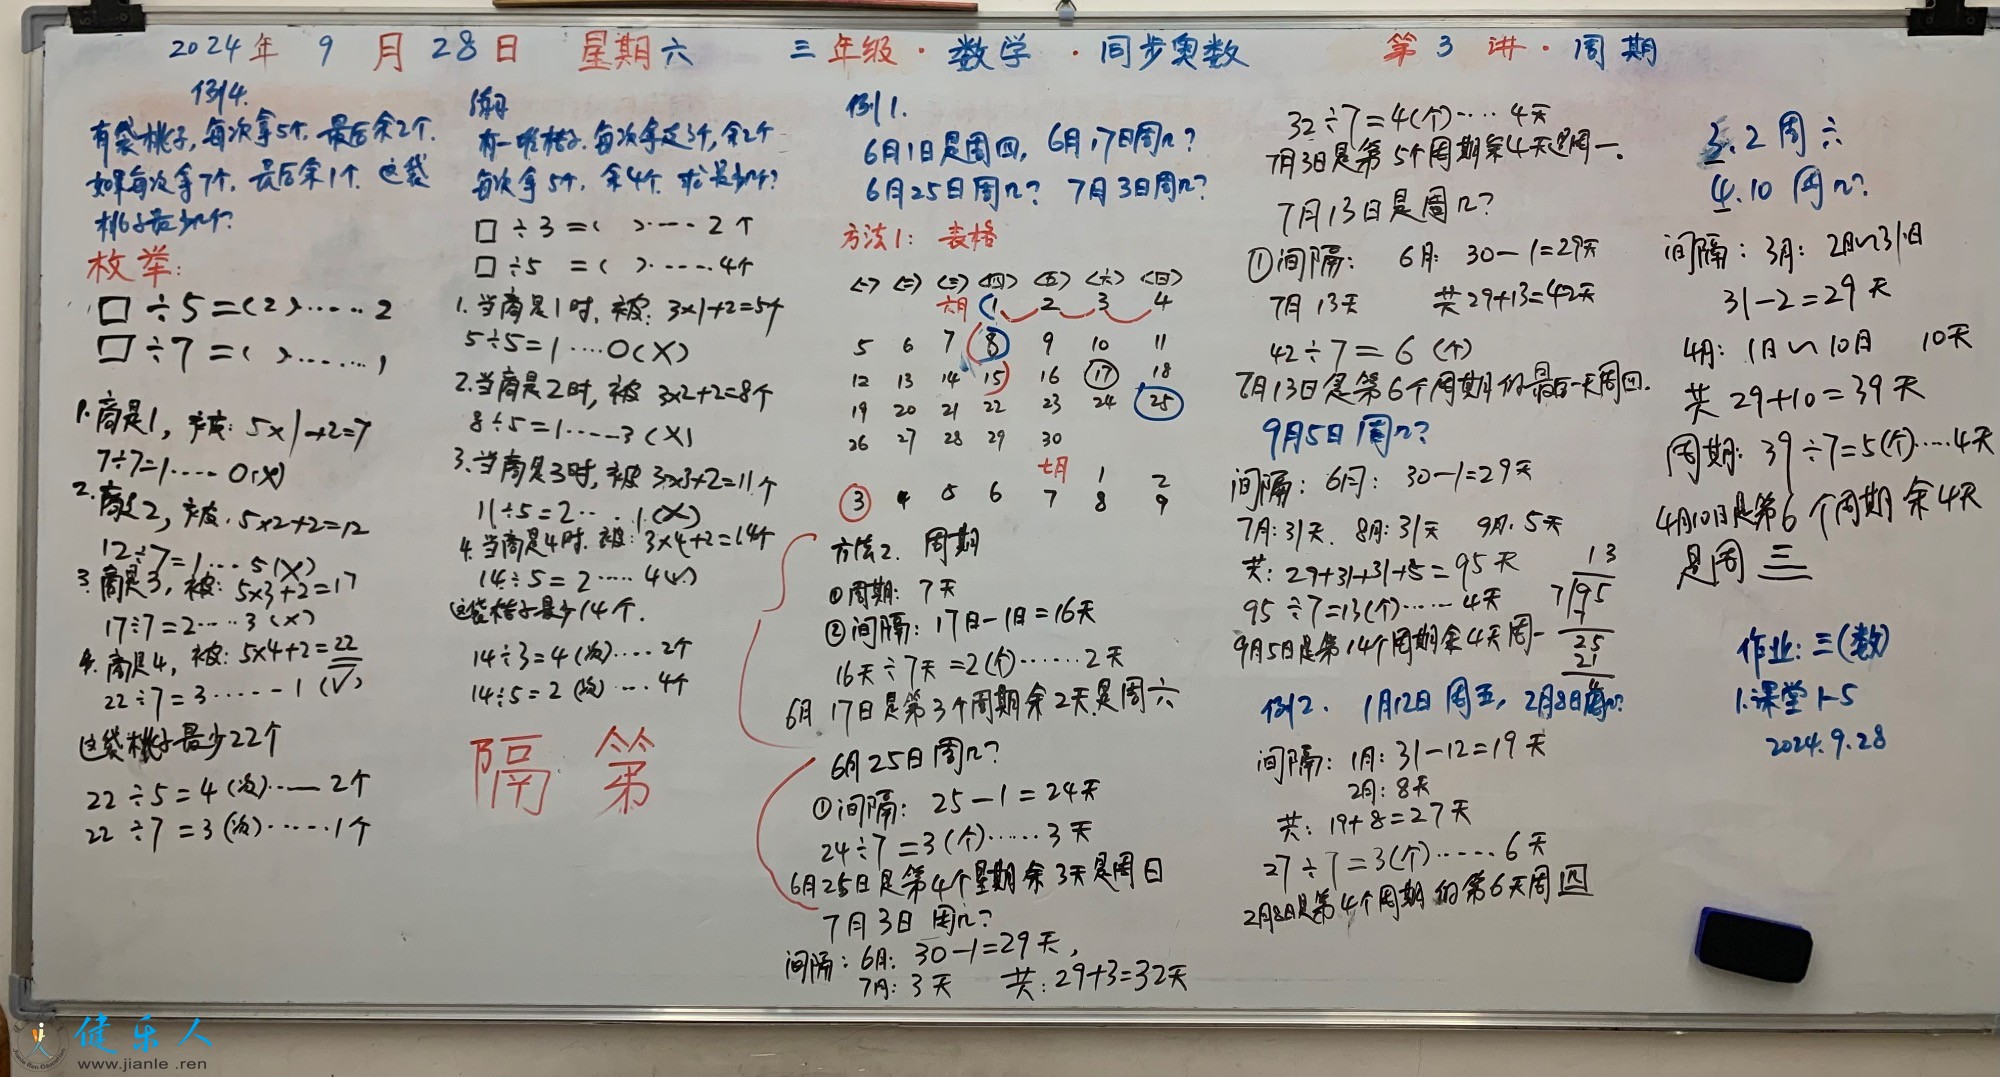 2024年 9 月 28日 星期六 三年级·数学·同步奥数 第3讲·周期
例4.
有袋桃子,每次拿5个.最后余2个.
如果每次拿7个.最后余1个.这袋
桃子最少几个?
枚举:
□÷5=(2)……2
□÷7=( )……1
1.商是1,被:5×1+2=7
7÷7=1……0(×)
2.商是2,被.5×2+2=12
12÷7=1…5(×)
3.商是3,被:5×3+2=17
17÷7=2……3(×)
4.商是4,被:5×4+2=22
22÷7=3……1(√)
这袋桃子最少22个
22÷5=4(次)……2个
22÷7=3(次)……1个
有一堆桔子.每次拿走3个,余2个
每次拿5个.余4个.求最少几个?
□÷3=( )……2个
□÷5=( )……4个
1.当商是1时,被:3×1+2=5个
5÷5=1……0(×)
2.当商是2时,被 3×2+2=8个
8÷5=1……3(×)
3.当商是3时,被 3×3+2=11个
11÷5=2…1(×)
4.当商是4时.被:3×4+2=14个
14÷5=2……4(√)
这袋桔子最少14个.
14÷3=4(次)……2个
14÷5=2(次)……4个
隔 第
例1.
6月1日是周四,6月17日周几?
6月25日周几? 7月3日周几?
方法1: 表格
(一) (二) (三) (四) (五) (六) (日)
六月 1 2 3 4
5 6 7 8 9 10 11
12 13 14 15 16 17 18
19 20 21 22 23 24 25
26 27 28 29 30
七月 1 2
3 4 5 6 7 8 9
方法2. 周期
①周期: 7天
②间隔:17日-1日=16天
16天÷7天=2(个)……2天
6月17日是第3个周期余2天.是周六
6月25日周几?
①间隔: 25-1=24天
24÷7=3(个)……3天
6月25日是第4个星期余3天是周日
7月3日 周几?
间隔:6月: 30-1=29天,
7月:3天 共:29+3=32天
32÷7=4(个)……4天
7月3日是第5个周期余4天是周一.
7月13日是周几?
①间隔: 6月: 30-1=29天
7月13天 共29+13=42天
42÷7=6(个)
7月13日是第6个周期的最后一天周四.
9月5日周几?
间隔:6月: 30-1=29天
7月:31天. 8月:31天 9月.5天
共:29+31+31+5=95天
95÷7=13(个)……4天
9月5日是第14个周期余4天周一
13
7/95
7
25
21
4
例2. 1月12日周五,2月8日周几?
间隔:1月:31-12=19天
2月:8天
共:19+8=27天
27÷7=3(个)……6天
2月8日是第4个周期的第6天周四
3.2周六
4.10周几?
间隔:3月:2日~31日
31-2=29天
4月:1日~10日 10天
共29+10=39天
周期:39÷7=5(个)……4天
4月10日是第6个周期余4天
是周三
作业:三(数)
1.课堂1-5
2024.9.28
健乐人
www.jianle.ren